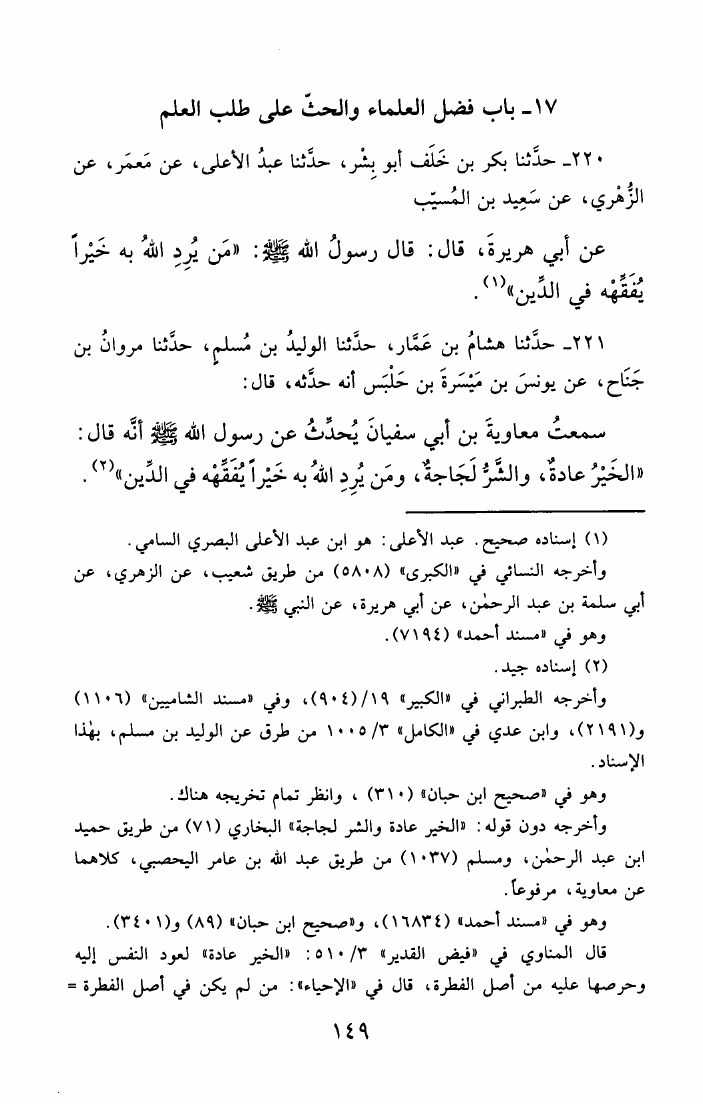 ١٧ـ باب فضل العلماء والحثّ على طلب العلم
٢٢٠ـ حدَّثنا بكر بن خَلَف أبو بِشْر، حدَّثنا عبدُ الأعلى، عن مَعمَر، عن
الزُّهْري، عن سَعِيد بن المُسيّب
عن أبي هريرةَ، قال: قال رسولُ الله ﷺ: «مَن يُرِدِ اللهُ به خَيْراً
يُفَقِّهْه في الدِّين»(١).
٢٢١ـ حدَّثنا هشامُ بن عَمَّار، حدَّثنا الوليدُ بن مُسلمٍ، حدَّثنا مروانُ بن
جَنَاح، عن يونسَ بن مَيْسَرةَ بن حَلْبَس أنه حدَّثه، قال:
سمعتُ معاويةَ بن أبي سفيانَ يُحدِّثُ عن رسول الله ﷺ أنَّه قال:
«الخَيْرُ عادةٌ، والشَّرُّ لَجَاجةٌ، ومَن يُرِدِ اللهُ به خَيْراً يُفَقِّهْه في الدِّين»(٢).
(١) إسناده صحيح. عبد الأعلى: هو ابن عبد الأعلى البصري السامي.
وأخرجه النسائي في «الكبرى» (٥٨٠٨) من طريق شعيب، عن الزهري، عن
أبي سلمة بن عبد الرحمٰن، عن أبي هريرة، عن النبي ﷺ.
وهو في «مسند أحمد» (٧١٩٤).
(٢) إسناده جيد.
وأخرجه الطبراني في «الكبير» ١٩/(٩٠٤)، وفي «مسند الشاميين» (١١٠٦)
و(٢١٩١)، وابن عدي في «الكامل» ١٠٠٥/٣ من طرق عن الوليد بن مسلم، بهٰذا
الإسناد.
وهو في «صحيح ابن حبان» (٣١٠) ، وانظر تمام تخريجه هناك.
وأخرجه دون قوله: «الخير عادة والشر لجاجة» البخاري (٧١) من طريق حميد
ابن عبد الرحمٰن، ومسلم (١٠٣٧) من طريق عبد الله بن عامر اليحصبي، كلاهما
عن معاوية، مرفوعاً.
وهو في «مسند أحمد» (١٦٨٣٤)، و«صحيح ابن حبان» (٨٩) و(٣٤٠١).
قال المناوي في «فيض القدير» ٥١٠/٣: «الخير عادة» لعود النفس إليه
وحرصها عليه من أصل الفطرة، قال في «الإحياء»: من لم يكن في أصل الفطرة =
١٤٩